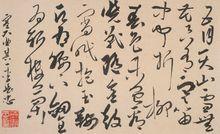 五月天山雪無
花只有寒笛
中聞折柳
春色未曾看
曉戰隨金鼓
宵眠抱玉鞍
願將腰下劍直
為斬樓蘭
塞下曲其一